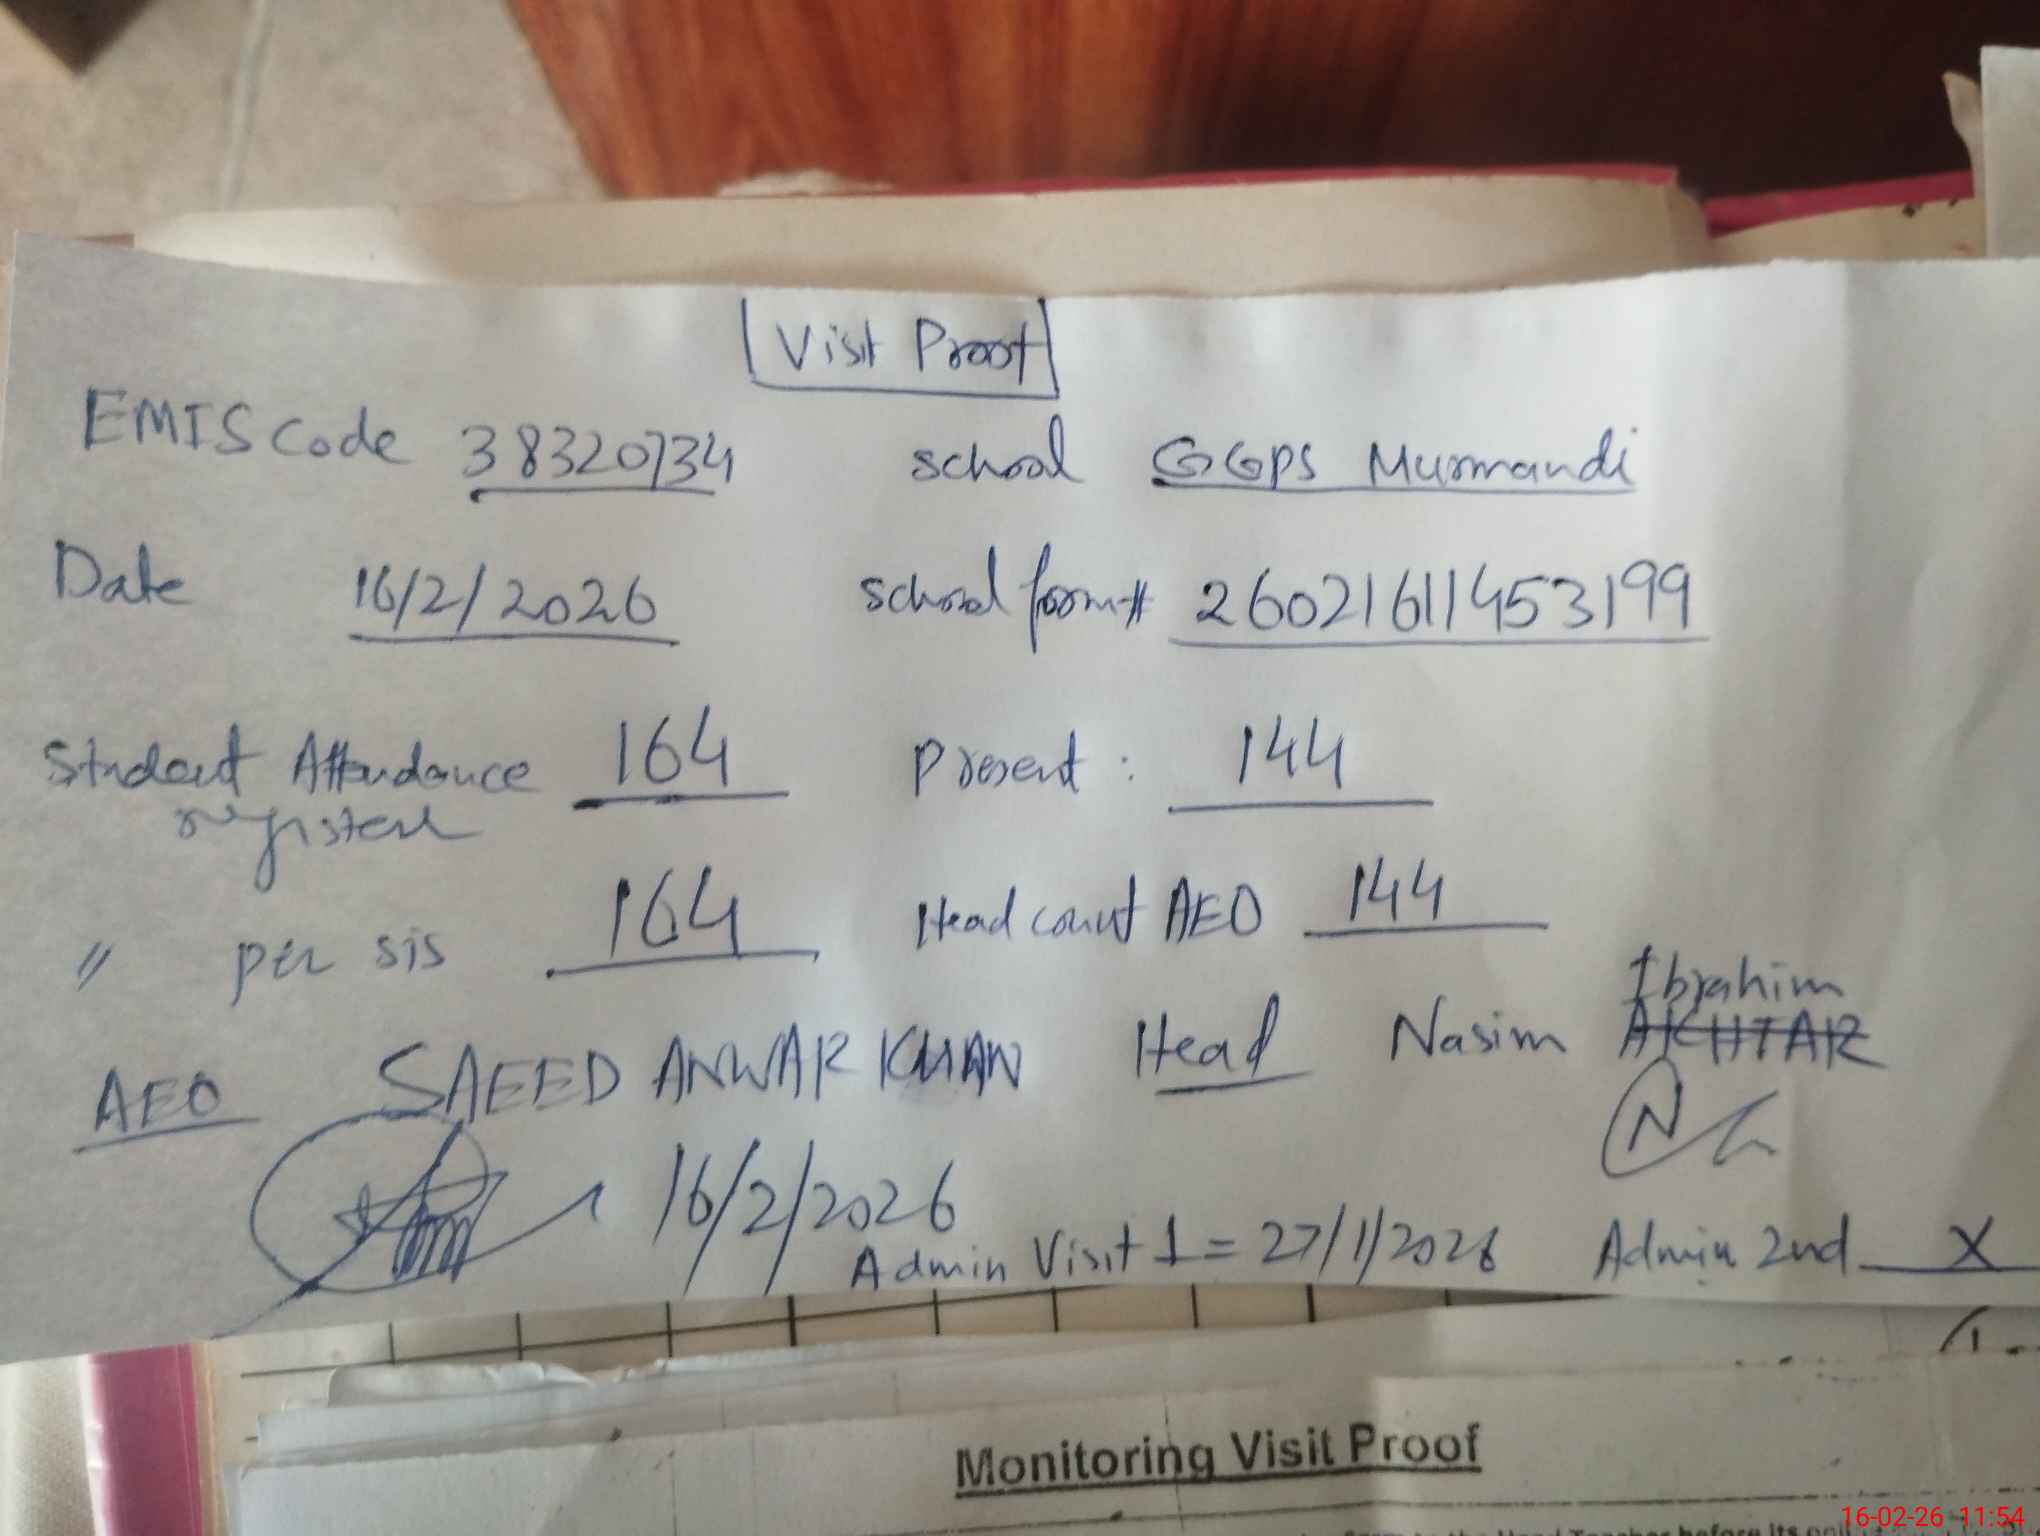 Visit Proof
EMIS Code 38320734 school GGPS Murmandi
Date 16/2/2026 school form# 26021611453199
Student Attendance 164 Present : 144
register
" per sis 164 Head count AEO 144
Ibrahim
AEO SAEED ANWAR KHAN Head Nasim AKHTAR
16/2/2026
Admin Visit 1 = 27/1/2026 Admin 2nd X
Monitoring Visit Proof
16-02-26 11:54